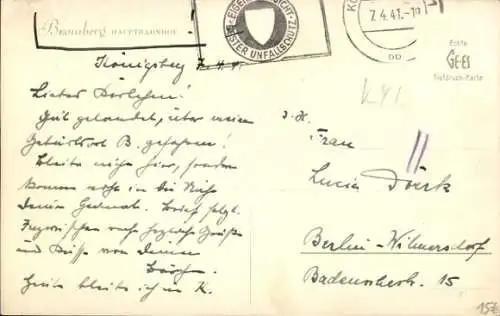 Braunsberg HAUPTBAHNHOF
EIGENE VORSICHT
BESTER UNFALLSCHUTZ
KÖ
7.4.41.-19
Echte
GEES
Tiefdruck-Karte
K 41
Königsberg 7.4.41
Liebes Dorlchen!
Gut gelandet, über meinen
Geburtsort B. gefahren!
Bleibe nicht hier, sondern
komme noch in die Nähe
Deiner Heimat. Brief folgt.
Inzwischen recht herzliche Grüße
und Küsse von Deinem
Heute bleibe ich in K.
Frau
Lucie Doerk
Berlin-Wilmersdorf
Badenschestr. 15
15E